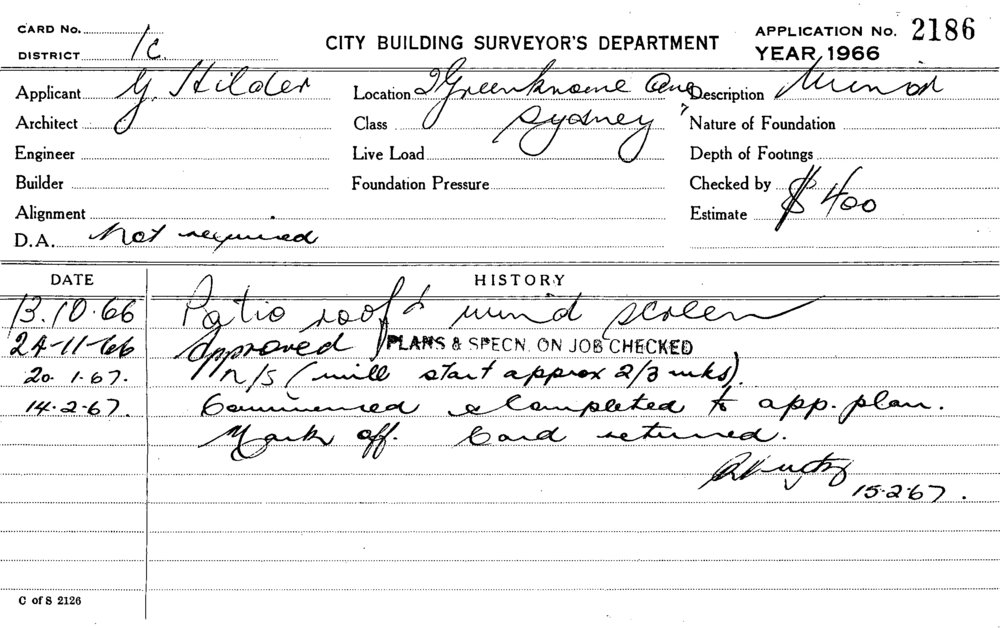 CARD No.
DISTRICT 1c
CITY BUILDING SURVEYOR'S DEPARTMENT
APPLICATION No. 2186
YEAR 1966
Applicant G. Hilder Location 2 Greenknowe Ave Description Minor
Architect Class Sydney Nature of Foundation
Engineer Live Load Depth of Footings
Builder Foundation Pressure Checked by
Alignment Estimate $400
D.A. Not required
DATE HISTORY
13.10.66 Patio roof & wind screen
24-11-66 Approved PLANS & SPECN. ON JOB CHECKED
20.1.67. N/S (will start approx 2/3 wks).
14.2.67. Commenced & Completed to app. plan.
Mark off. Card returned.
15.2.67.
C of S 2126